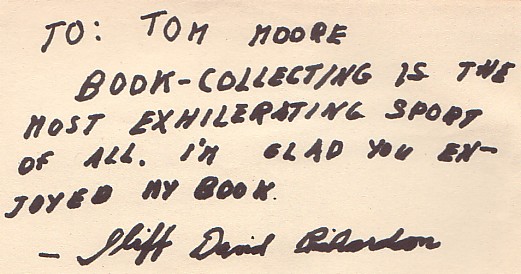 TO: TOM MOORE
BOOK-COLLECTING IS THE
MOST EXHILERATING SPORT
OF ALL. I'M GLAD YOU EN-
JOYED MY BOOK.
- Iliff David Richardson